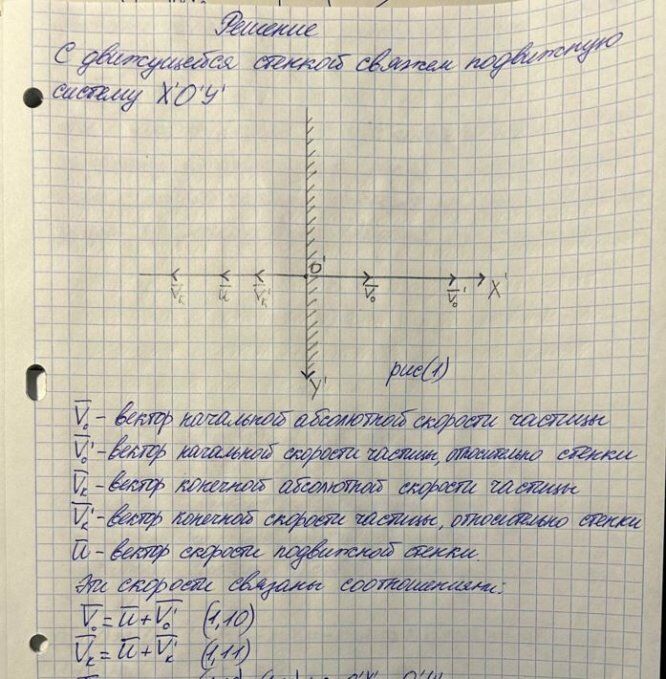 Решение
С движущейся стенкой свяжем подвижную
систему X'O'Y'
O'
V̅к u̅ V̅к' V̅о V̅о' X'
рис(1)
Y'
V̅о - вектор начальной абсолютной скорости частицы
V̅о' - вектор начальной скорости частицы, относительно стенки
V̅к - вектор конечной абсолютной скорости частицы
V̅к' - вектор конечной скорости частицы, относительно стенки
u̅ - вектор скорости подвижной стенки.
Эти скорости связаны соотношениями:
V̅о = u̅ + V̅о' (1,10)
V̅к = u̅ + V̅к' (1,11)